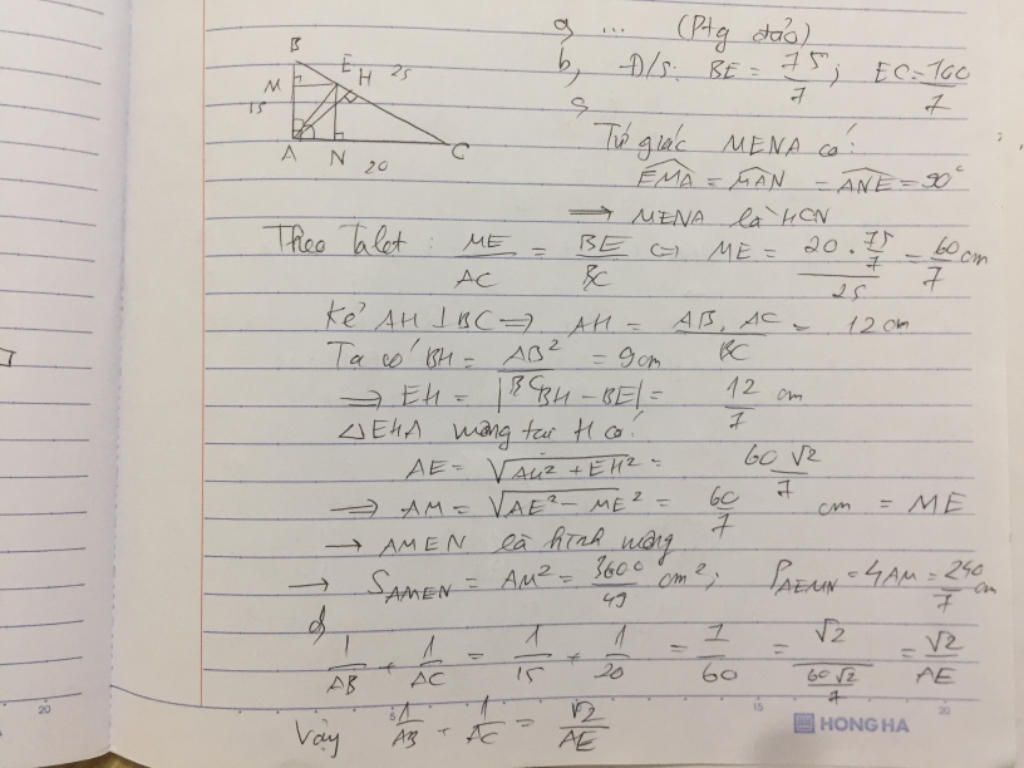 a, ... (Ptg đảo)
b, Đ/s: BE = 75/7; EC = 100/7
c,
B
E
H
25
M
15
A
N
20
C
Tứ giác MENA có:
EMA = MAN = ANE = 90°
⟹ MENA là HCN
Theo Talet: ME/AC = BE/BC ⟺ ME = (20 . 75/7)/25 = 60/7 cm
Kẻ AH ⊥ BC ⟹ AH = AB. AC/BC = 12 cm
Ta có BH = AB²/BC = 9cm
⟹ EH = |BH - BE| = 12/7 cm
△EHA vuông tại H có:
AE = √(AH² + EH²) = 60√2/7
⟹ AM = √(AE² - ME²) = 60/7 cm = ME
→ AMEN là hình vuông
→ S_AMEN = AM² = 3600/49 cm²; P_AEMN = 4AM = 240/7 cm
d,
1/AB + 1/AC = 1/15 + 1/20 = 7/60 = √2/(60√2/7) = √2/AE
Vậy 1/AB + 1/AC = √2/AE
20
5
15
20
HONG HA